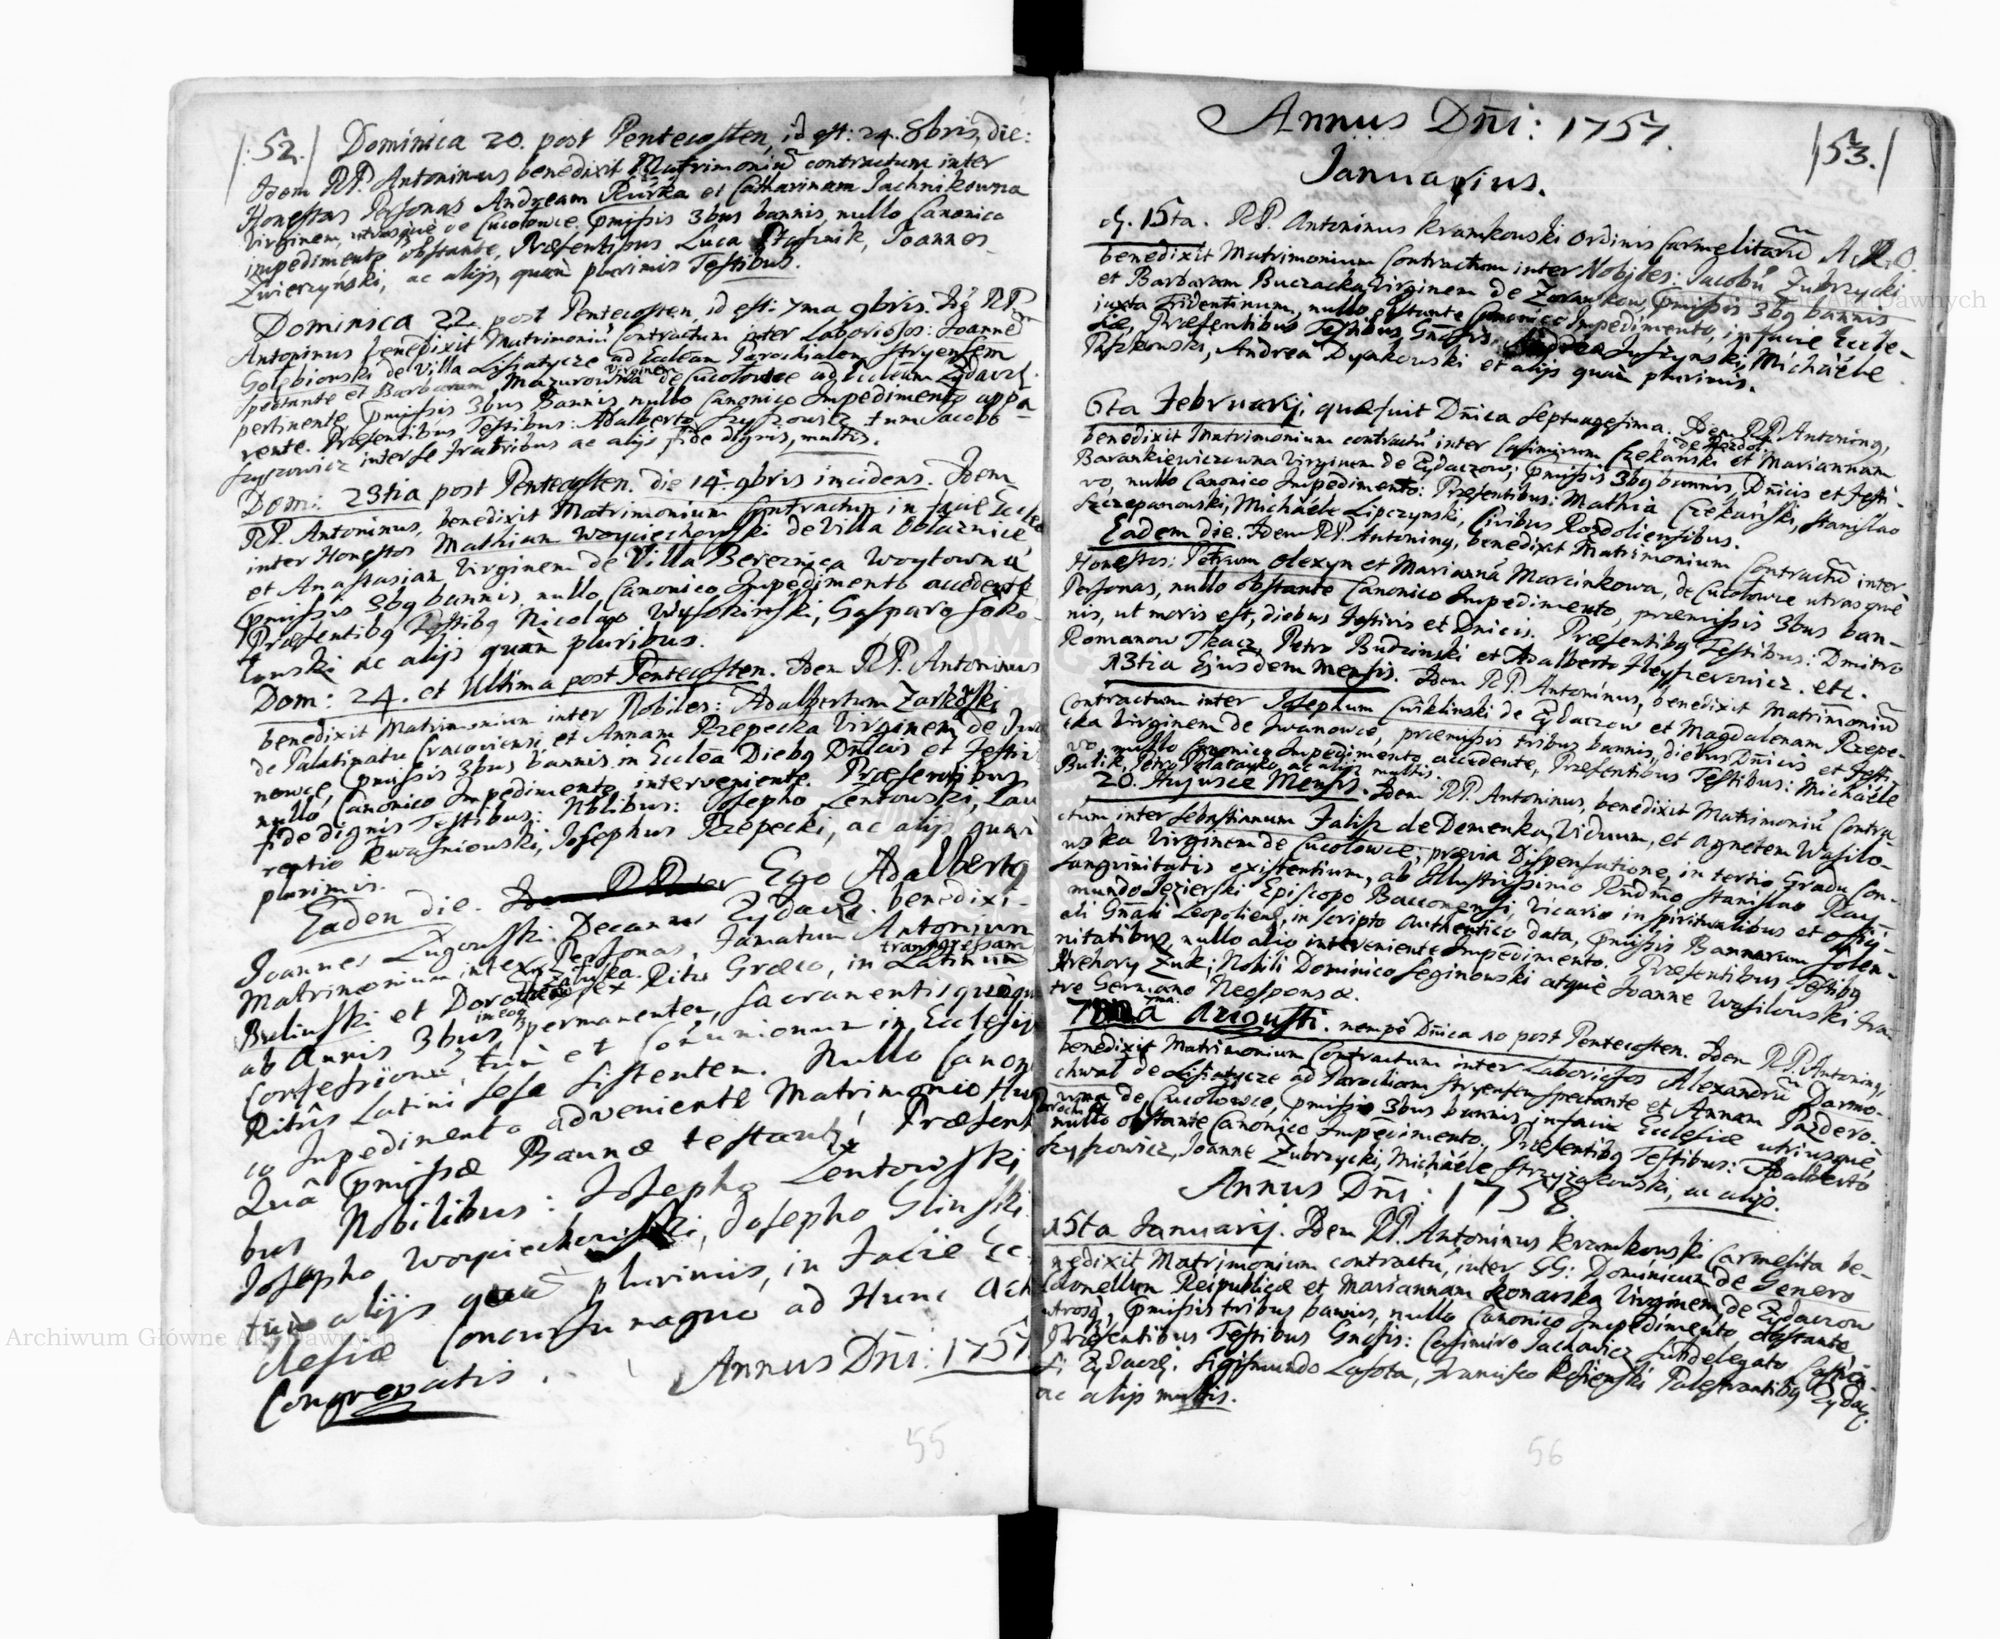 |:52.:| Dominica 20. post Pentecosten, id est: 24. 8bris, die:
Idem RP. Antoninus benedixit Matrimoniũ contractum inter
Honestas Personas Andream Rurka et Catharinam Jachnikowna
Virginem, utrosque de Cucolowce, pmissis 3bus bannis, nullo Canonico
impedimento obstante, Præsentibus Luca Joannes
Zwierzyński, ac alijs, quàm plurimis Testibus.
Dominica 22. post Pentecosten, id est: 7ma 9bris. Idẽ RP.
Antoninus benedixit Matrimoniũ Contractum inter Laboriosos: Joannẽ
Gołębiowski de Villa Lisiatycze ad Eccleam Parochialem Stryensem
spectante et Barbaram Mazurowna Virginem de Cucolowce ad Eccleam Zydacz.
pertinente, pmissis 3bus Bannis, nullo Canonico Impedimento appa
rente. Præsentibus Testibus: Adalberto Szyszowicz tum Jacobo
Szyszowicz inter se fratribus ac alijs fide dignis, multis.
Dom: 23tia post Pentecosten. die 14. 9bris incidens. Idem
RP. Antoninus, benedixit Matrimonium Contractum in facie Eccleæ
inter Honestos Mathiam Woyciechowski de Villa Oblaznice
et Anastasiam Virginem de Villa Bereznica Woytowna
pmissis 3bq bannis, nullo Canonico Impedimento accedente
Præsentibq Testibq Nicolao Wysokinski, Gasparo Soko-
łowski ac alijs quàm pluribus.
Dom: 24. et Ultima post Pentecosten. Idem RP. Antoninus
benedixit Matrimonium inter Nobiles: Adalbertum Zarkoski
de Palatinatu Cracoviensi, et Annam Rzepecka Virginem de Iwa
nowce, pmissis 3bus bannis, in Ecclea Diebq Dnĩcis et Festi
nullo Canonico Impedimento interveniente. Præsentibus
fide dignis Testibus: Nblibus: Josepho Zentowski, Lau
rentio Kwasniowski, Josephus Rzepecki, ac alijs quàm
plurimis.
Eaden die. Ego Adalbertq
Joannes Ługowski: Decanus Zydacz. benedixi-
Matrimonium inter Personas, Famatum Antonium
Bulinski et Dorotheã ex Ritu Græco, in Latinum transgressam
ab Annis 3bus in eoq permanentem, Sacramentis quoque
Confessionis, tùm et Comunionum in Ecclesijs
Ritûs Latini sese sistentem. Nullo Canon
co Impedimento adveniente Matrimonio Hui
Quâ pmissæ Bannæ testantʳ, Præsenti
bus Nobilibus: Josepho Zentowski,
Josepho Woyciechowski, Josepho Glinski
tùm alijs quàm plurimis, in Facie Ec-
clesiæ Concursu magno ad Hunc Act
Congregatis.
Annus Dn̄i: 1757
55
Annus Dn̄i: 1757.
|:53.:|
Januarius.
d. 15ta. RP. Antoninus Kramkowski Ordinis Carmelitarũ A.R.O.
benedixit Matrimonium Contractum inter Nobiles: Jacobũ Zubrzycki
et Barbaram Buczacka, Virginem de Zorawkow pmissis 3bq bannis
juxta Tridentinum, nullo obstante Canonico Impedimento, in facie Eccle-
siæ, Præsentibus Testibus Gnosis: Andrea Juszynski, Michaële
Paszkowski, Andrea Dynkowski et alijs quàm plurimis.
6ta Februarij, quæ fuit Dnĩca Septuagesima. Idem RP. Antoninq,
benedixit Matrimonium contractũ inter Casimirum Czekański de Rozdol et Mariannam
Barankiewiczowna Virginem de Zydaczow; pmissis 3bq bannis, Dnĩcis et Festi-
vo, nullo Canonico Impedimento: Præsentibus: Mathia Czekański, Stanislao
Szczepanowski, Michaële Lipczynski, Civibus Rozdoliensibus.
Eadem die. Idem RP. Antoninq, benedixit Matrimonium Contractũ inter
Honestos: Petrum Olexyn et Mariannã Marcinkowa, de Cucolowce utrasquè
Personas, nullo obstante Canonico Impedimento, præmissis 3bus ban-
nis, ut moris est, diebus Festivis et Dnĩcis. Præsentibq Testibus: Dmitro
Romanow Tkacz, Petro Budzinski et Adalberto Fleyszerowicz. etc.
13tia Ejusdem Mensis. Idem RP. Antoninus, benedixit Matrimoniũ
Contractum inter Josephum Cwiklinski de Zydaczow et Magdalenam Rzepe-
cka Virginem de Iwanowce, præmissis tribus bannis, diebus Dnĩcis et Festi-
vo, nullo Canonico Impedimento accedente, Præsentibus Testibus: Michaële
Bulik, Petro Polatayko, ac alijs multis.
20. Hujusce Mensis. Idem RP. Antoninus, benedixit Matrimoniũ Contra-
ctum inter Sebastianum Falisz de Demenka, Viduum, et Agnetem Wasilo-
wska Virginem de Cucolowce, prævia Dispensatione, in tertio Gradu Con-
sangvinitatis existentium, ab Illustrissimo Rndm̃o Stanislao Ray-
mundo Jezierski Episcopo Bacconensi, Vicario in spiritualibus et offici-
ali Gnãli Leopoliens, in scripto authentico data, pmissis Bannarum solen-
nitatibus, nullo alio interveniente Impedimento. Præsentibus Testibq
Hrehory Zuk; Nobili Dominico Seginowski atquè Joanne Wasilowski Fra-
tre Germano Neosponsæ.
7ma Augusti. nempè Dnĩca 10 post Pentecosten. Idem RP. Antoninq,
benedixit Matrimonium Contractum inter Laboriosos Alexandrũ Darmo-
chwal de Lisiatycze ad Parochiam Stryensem spectante et Annam Pazdero-
wna de Cucolowce, pmissis 3bus bannis in facie Ecclesiæ utriusquè,
nullo obstante Canonico Impedimento, Præsentibq Testibus: Adalberto
Szyszowicz, Joanne Zubrzycki, Michaële Strzyżakowski, ac alijs.
Annus Dn̄i: 1758
15ta Januarij. Idem RP. Antoninus Kramkowski Carmelita be-
nedixit Matrimonium contractũ, inter GG: Dominicum de Genero
Colonellum Reipublicæ et Mariannam Konarska Virginem de Zydaczow
utrosq, pmissis tribus bannis, nullo Canonico Impedimento, obstante
Præsentibus Testibus Gnosis: Casimiro Jachowicz Subdelegato Castren-
si Zydacz. Sigismundo Lasota, Francisco Rosienski Palestrantibq Zydacz.
ac alijs multis.
56
Archiwum Główne Akt Dawnych
Archiwum Główne Akt Dawnych